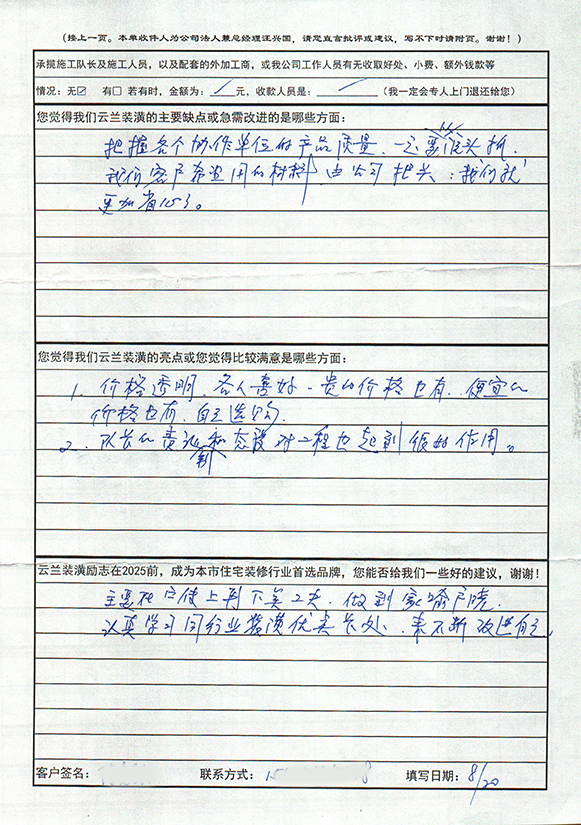 (接上一页。本单收件人为公司法人兼总经理汪兴国，请您直言批评或建议，写不下时请附页。谢谢！)
承揽施工队长及施工人员，以及配套的外加工商，或我公司工作人员有无收取好处、小费、额外钱款等
情况：无☑ 有□ 若有时，金额为：／元，收款人员是：／（我一定会专人上门退还给您）
您觉得我们云兰装潢的主要缺点或急需改进的是哪些方面：
把握各个协作单位的产品质量、一定要从头抓。
我们客户希望用的材料，由公司把关；我们就
更加省心了。
您觉得我们云兰装潢的亮点或您觉得比较满意是哪些方面：
1. 价格透明、各人喜好、贵的价格也有、便宜的
价格也有、自主选购。
2. 队长的责任和态度对工程也起到很好作用。
云兰装潢励志在2025前，成为本市住宅装修行业首选品牌，您能否给我们一些好的建议，谢谢！
主要在宣传上判下实工夫、做到家喻户晓。
认真学习同行业装潢优卖长处、来不断改进自己
客户签名： 联系方式：1 8 填写日期：8/20